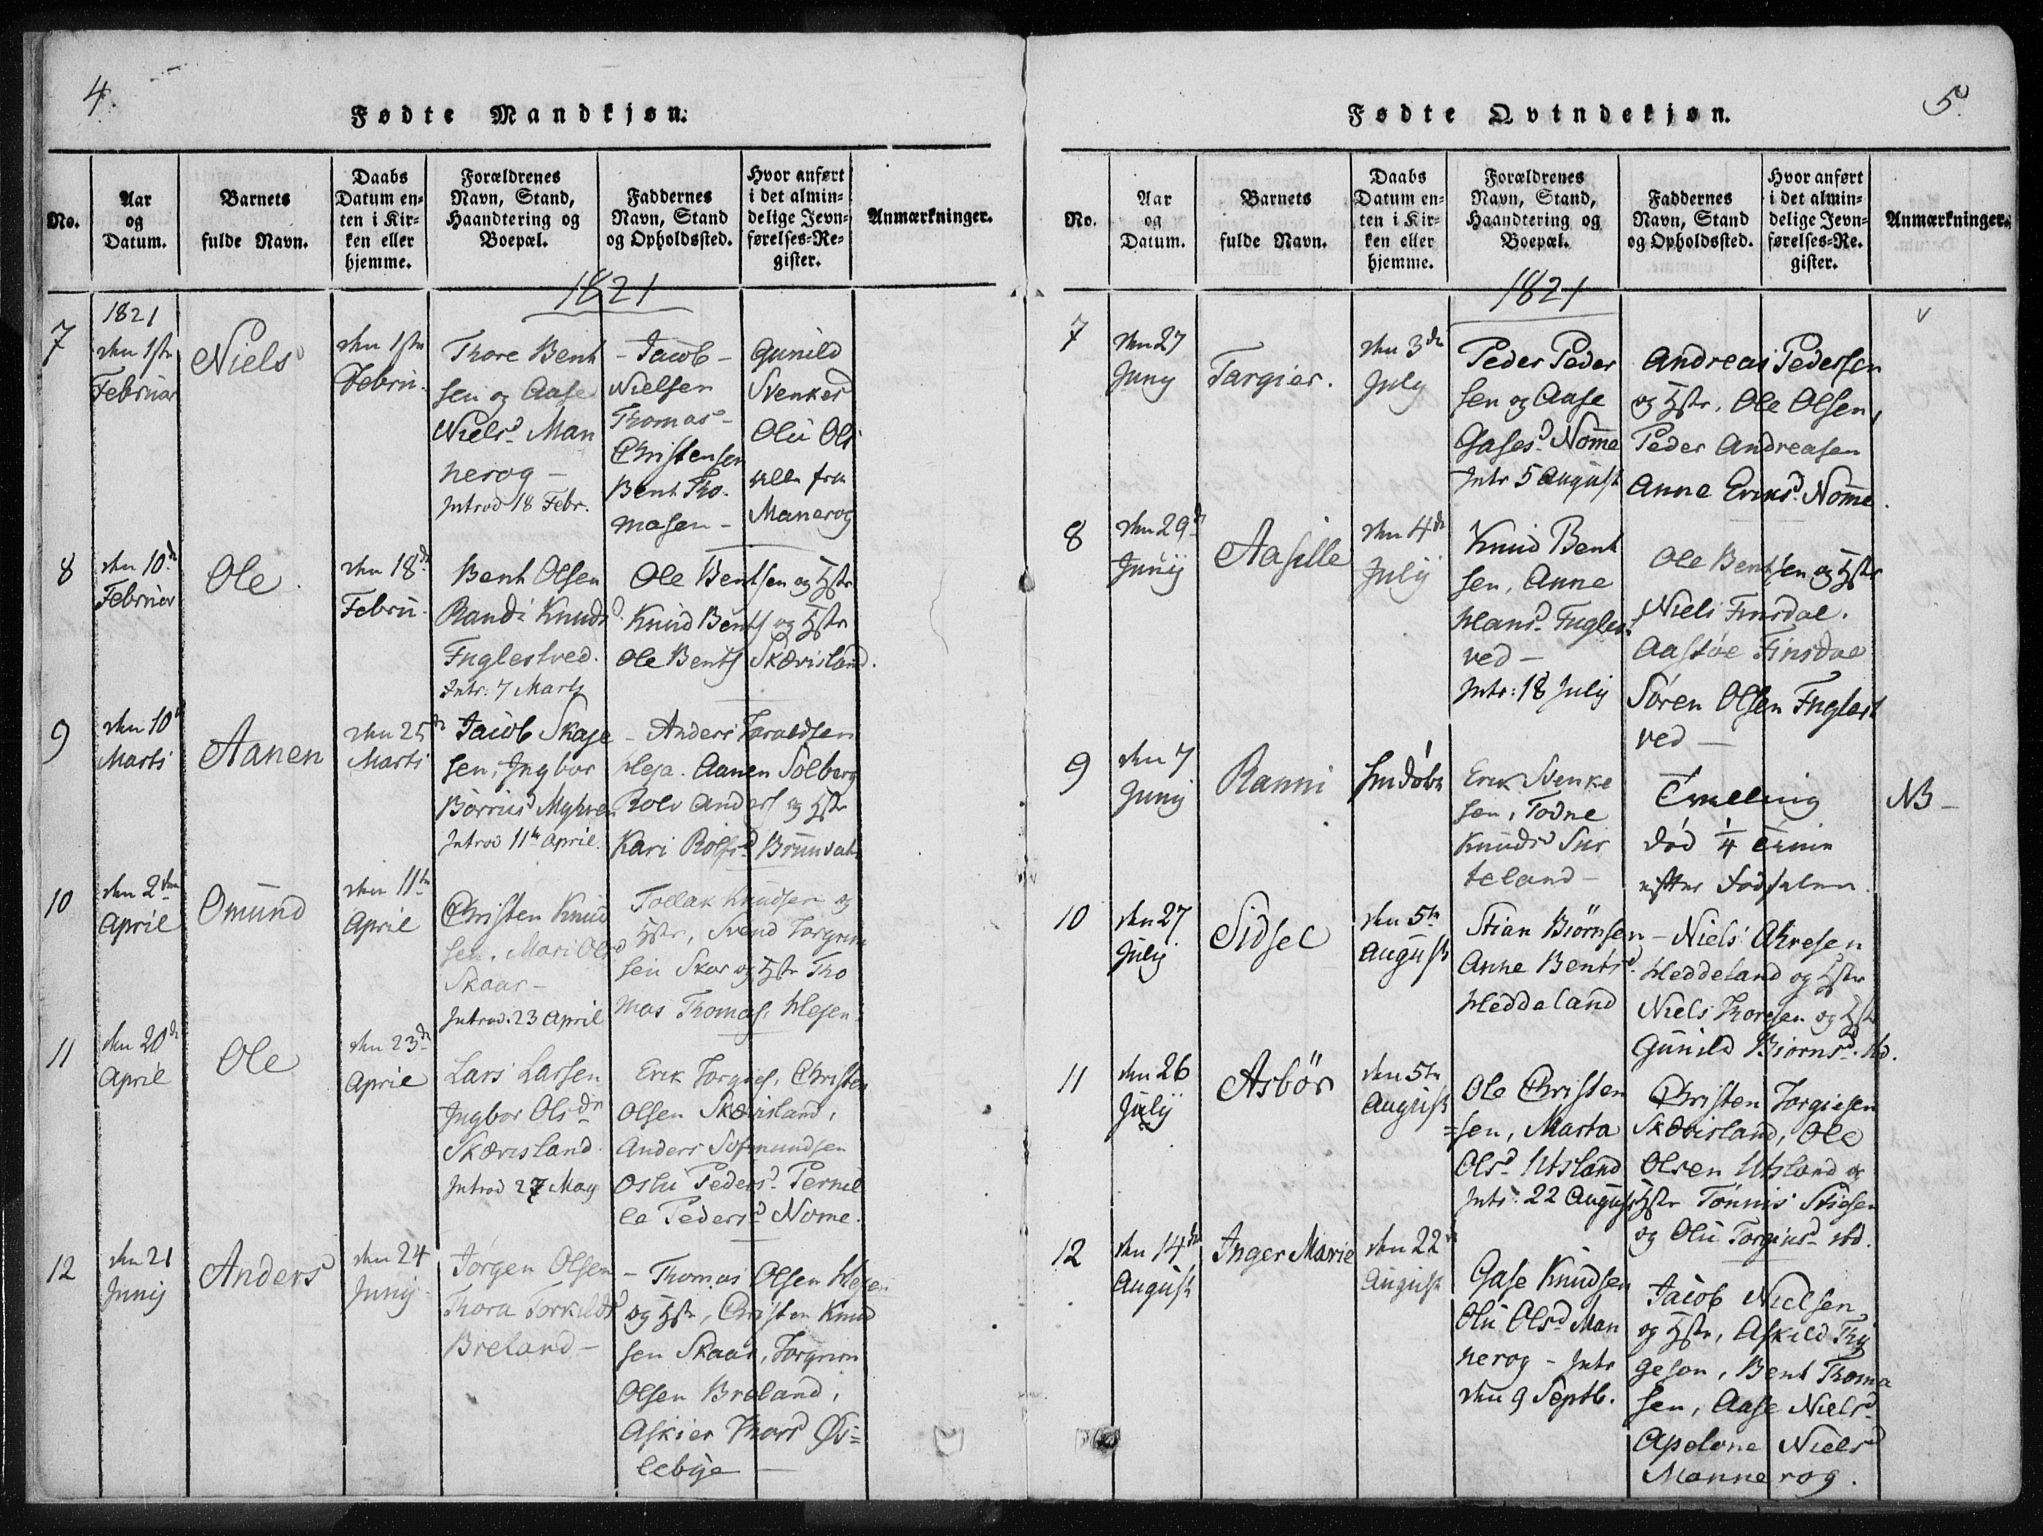 4.
Fødte Mandkjøn.
No.
Aar
og
Datum.
Barnets
fulde Navn.
Daabs
Datum en-
ten i Kir-
ken eller
hjemme.
Forældrenes
Navn, Stand,
Haandtering og
Boepæl.
Faddernes
Navn, Stand
og Opholdssted.
Hvor anført
i det almin-
delige Jevn-
førelses-Re-
gister.
Anmærkninger.
1821
7
1821
den 1ste
Februar
Niels
den 1ste
Febru.
Thore Bent
sen og Aase
Nielsd. Man
nerog –
Introd 18 Febr.
– Jacob –
Nielsen
Thomas –
Christensen
Bent Tho-
masen –
Gunild
Svenkesd
Olu Ols
alle fra
Manerog
8
den 10de
Februar
Ole
den 18de
Febru.
Bent Olsen
Randi Knudsd.
Fuglestved.
Intr: 7 Marts
Ole Bentsen og Hstr
Knud Bents og Hstr
Ole Bents Skærisland.
9
den 10de
Marts
Aanen
den 25de
Marts
Jacob Skaje
sen, Ingbor
Börriusd Myhren
Introd 11te April.
– Anders Taraldsen
Heja. Aanen Solberg
Rolv Anders og Hstr
Kari Rolfsd. Brunvatn
10
den 2den
April
Omund
den 11te
April
Christen Knud
sen, Mari Olsd
Skaar –
Introd. 23 April
Tollak Knudsen og
Hstr, Svend Torgrim
sen Skar og Hstr Tho
mas Thomas. Hesen.
11
den 20de
April
Ole
den 23de
April
Lars Larsen
Ingbor Olsdr
Skærisland.
Introd 27 May
Erik Torgies, Christen
Olsen Skærisland,
Anders Sofmundsen
Oslu Pedersd. Pernil
le Pedersd. Nome.
12
den 21
Junij
Anders
den 24
Junij
Jørgen Olsen
Thora Torkildsd
Breland –
– Thomas Olsen Hesen
og Hstr, Christen Knud
sen Skaar, Torgrim
Olsen Breland,
Askier Thord Øs=
lebye –
5.
Fødte Qvindekjøn.
No.
Aar
og
Datum.
Barnets
fulde Navn.
Daabs
Datum en-
ten i Kir-
ken eller
hjemme.
Forældrenes
Navn, Stand,
Haandtering og
Boepæl.
Faddernes
Navn, Stand
og Opholdssted.
Hvor anført
i det almin-
delige Jevn-
førelses-Re-
gister.
Anmærkninger.
1821
7
den 27
Juny
Targier.
den 3de
July
Peder Peder
sen og Aase
Gasesd Nomme
Intr 5 August
Andreas Pedersen
og Hstr. Ole Olsen,
Peder Andreasen
Anne Eriksd. Nomme.
8
den 29de
Junij
Aasille
den 4de
Julij
Knud Bent
sen, Anne
Hansd. Fuglest
ved –
Intr: 18 July
Ole Bentsen og Hstr
Niels Finsdal.
Aaslöe Finsdal
Sören Olsen Fuglest
ved –
9
den 7
Junij
Ranni
hmdøbt
Erik Svenke
sen, Todne
Knudsd Sur
teland –
Tvilling
död 1/4 Time
efter Födselen.
NB –
10
den 27
July
Sidsel
den 5te
August
Stian Biörnsen
Anne Bentsd.
Heddeland
– Niels Ahresen
Heddeland og Hstr
Niels Thoresen og Hstr
Gunild Biornsd. Hd.
11
den 26
Julij
Asbör
den 5te
August
Ole Christen
=sen, Marta
Olsd. Utsland
Intr: 22 August
Christen Torgiesen
Skærisland, Ole
Olsen Utsland og
Hstr Tönnis Stiesen
og Olu Torgiusd. ibd.
12
den 14de
August
Inger Marie
den 22de
August
Gase Knudsen
Olu Olsd. Man
nerog – Intr
den 9 Septb.
Jacob Nielsen,
og Hstr, Askild Thy
geson, Bent Thoma
sen, Aase Nielsd.
Apelone Nielsd
Mannerog.